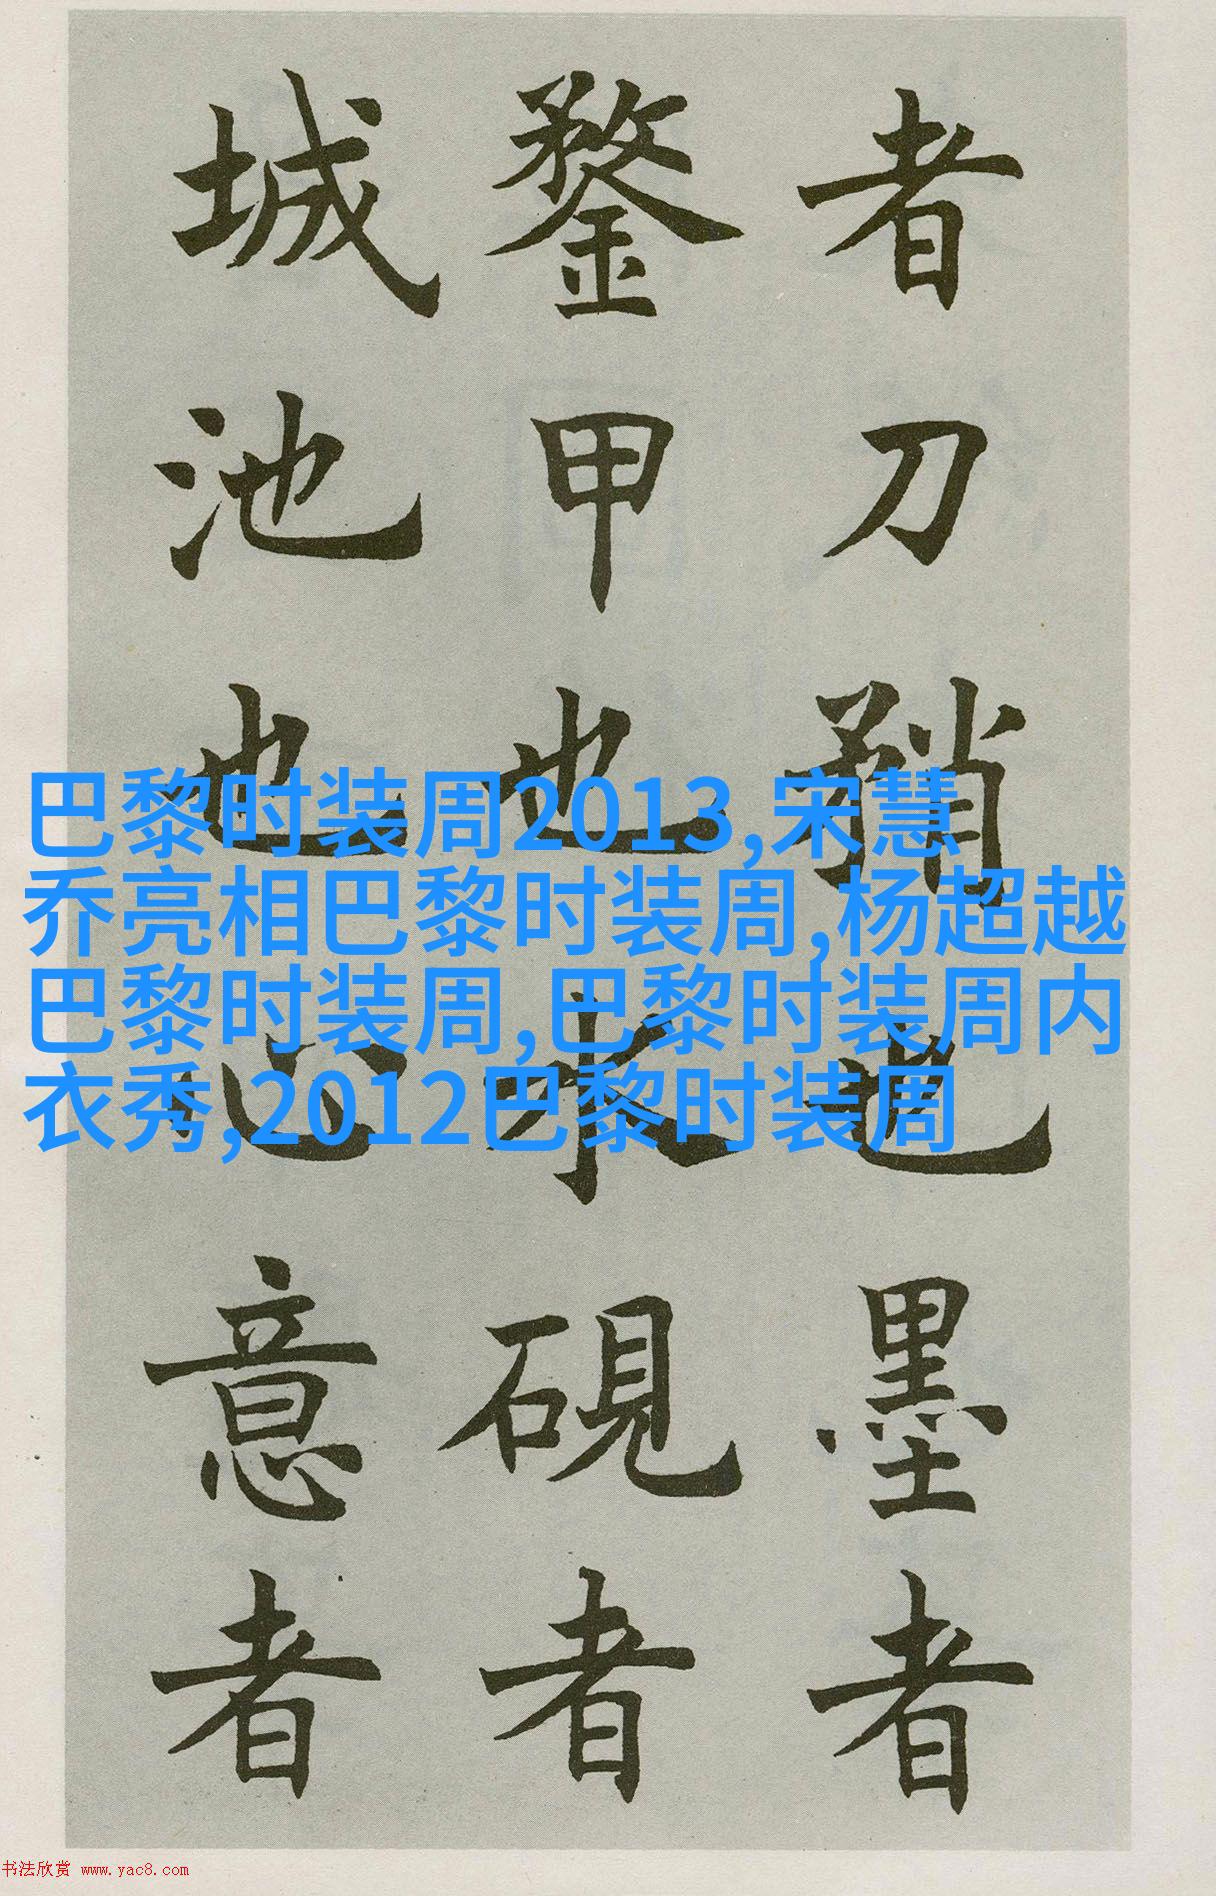 者刀矟也墨者
鍪甲也水硯者
城池也心意者
巴黎时装周2013,宋慧
乔亮相巴黎时装周,杨超越
巴黎时装周,巴黎时装周内
衣秀,2012巴黎时装周
书法欣赏 www.yac8.com